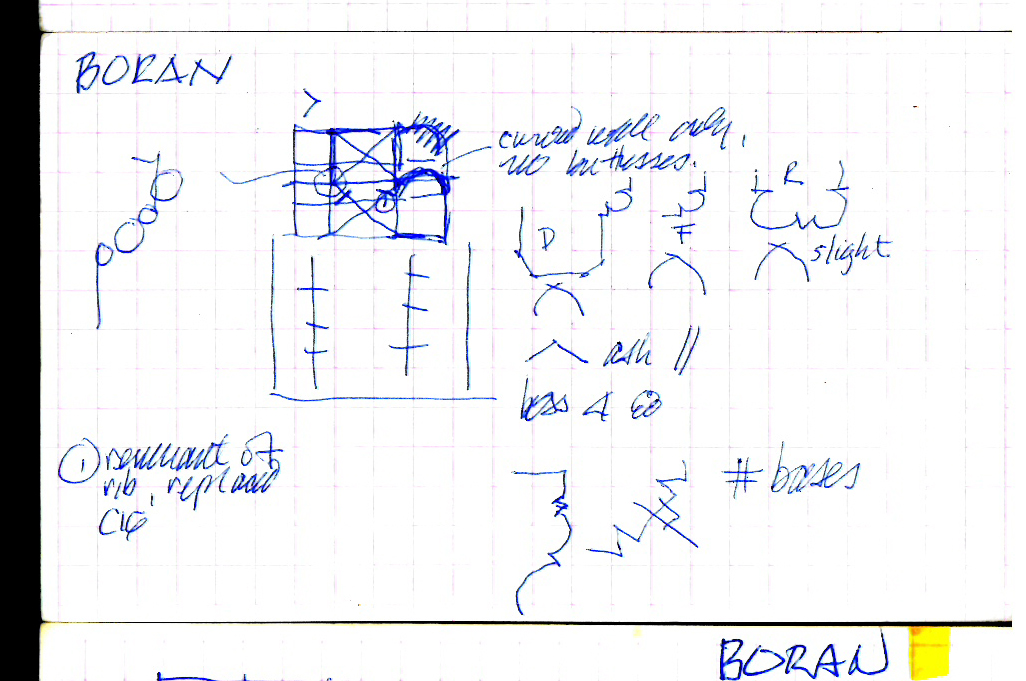 BORAN
curved wall only,
no buttresses.
D
F
R
slight
ash //
boss 4
① remnant of
rib, replaced
C16
# bases
BORAN